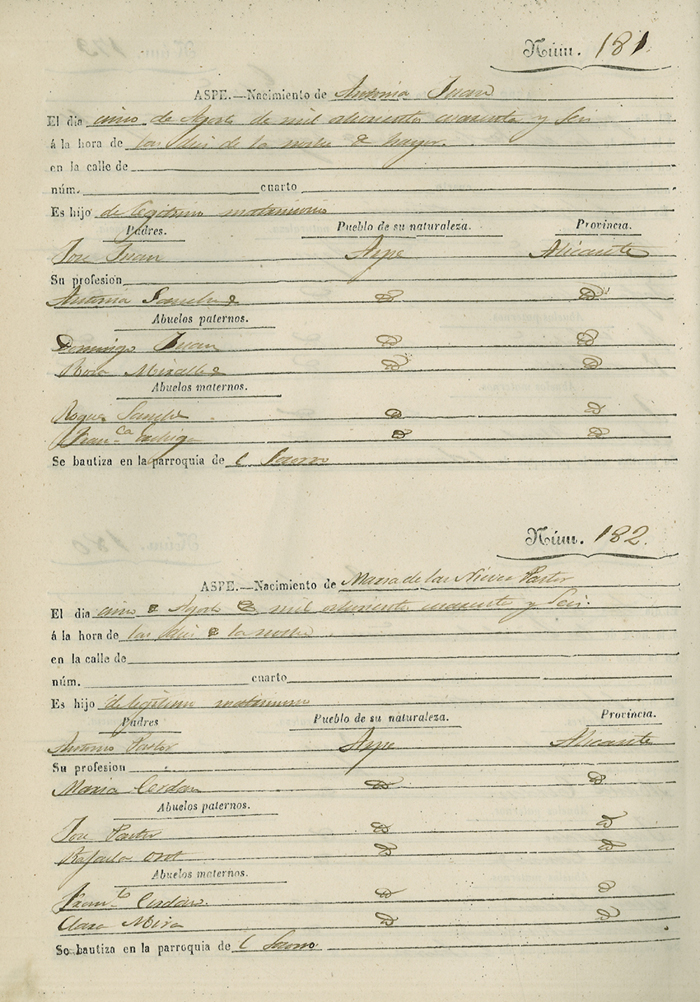 Núm. 181
ASPE.—Nacimiento de Antonia Juan
El dia cinco de Agosto de mil ochocientos cuarenta y Seis
á la hora de las diez de la noche
en la calle de
núm. cuarto
Es hijo de legitimo matrimonio
Padres. Pueblo de su naturaleza. Provincia.
Jose Juan Aspe Alicante
Su profesion
Antonia Sanchez D D
Abuelos paternos.
Domingo Juan D D
Rosa Miralles D D
Abuelos maternos.
Roque Sanchez D D
Fran.ca D D
Se bautiza en la parroquia de el Socorro
Núm. 182.
ASPE.—Nacimiento de Maria de las Nieves Pastor
El dia cinco de Agosto de mil ochocientos cuarenta y Seis.
á la hora de las diez de la noche
en la calle de
núm. cuarto
Es hijo de legitimo matrimonio
Padres Pueblo de su naturaleza. Provincia.
Antonio Pastor Aspe Alicante
Su profesion
Maria Cerdan D D
Abuelos paternos.
Jose Pastor D D
Rafaela D D
Abuelos maternos.
Fran.co Cerdan D D
Clara Mira D D
So bautiza en la parroquia de el Socorro